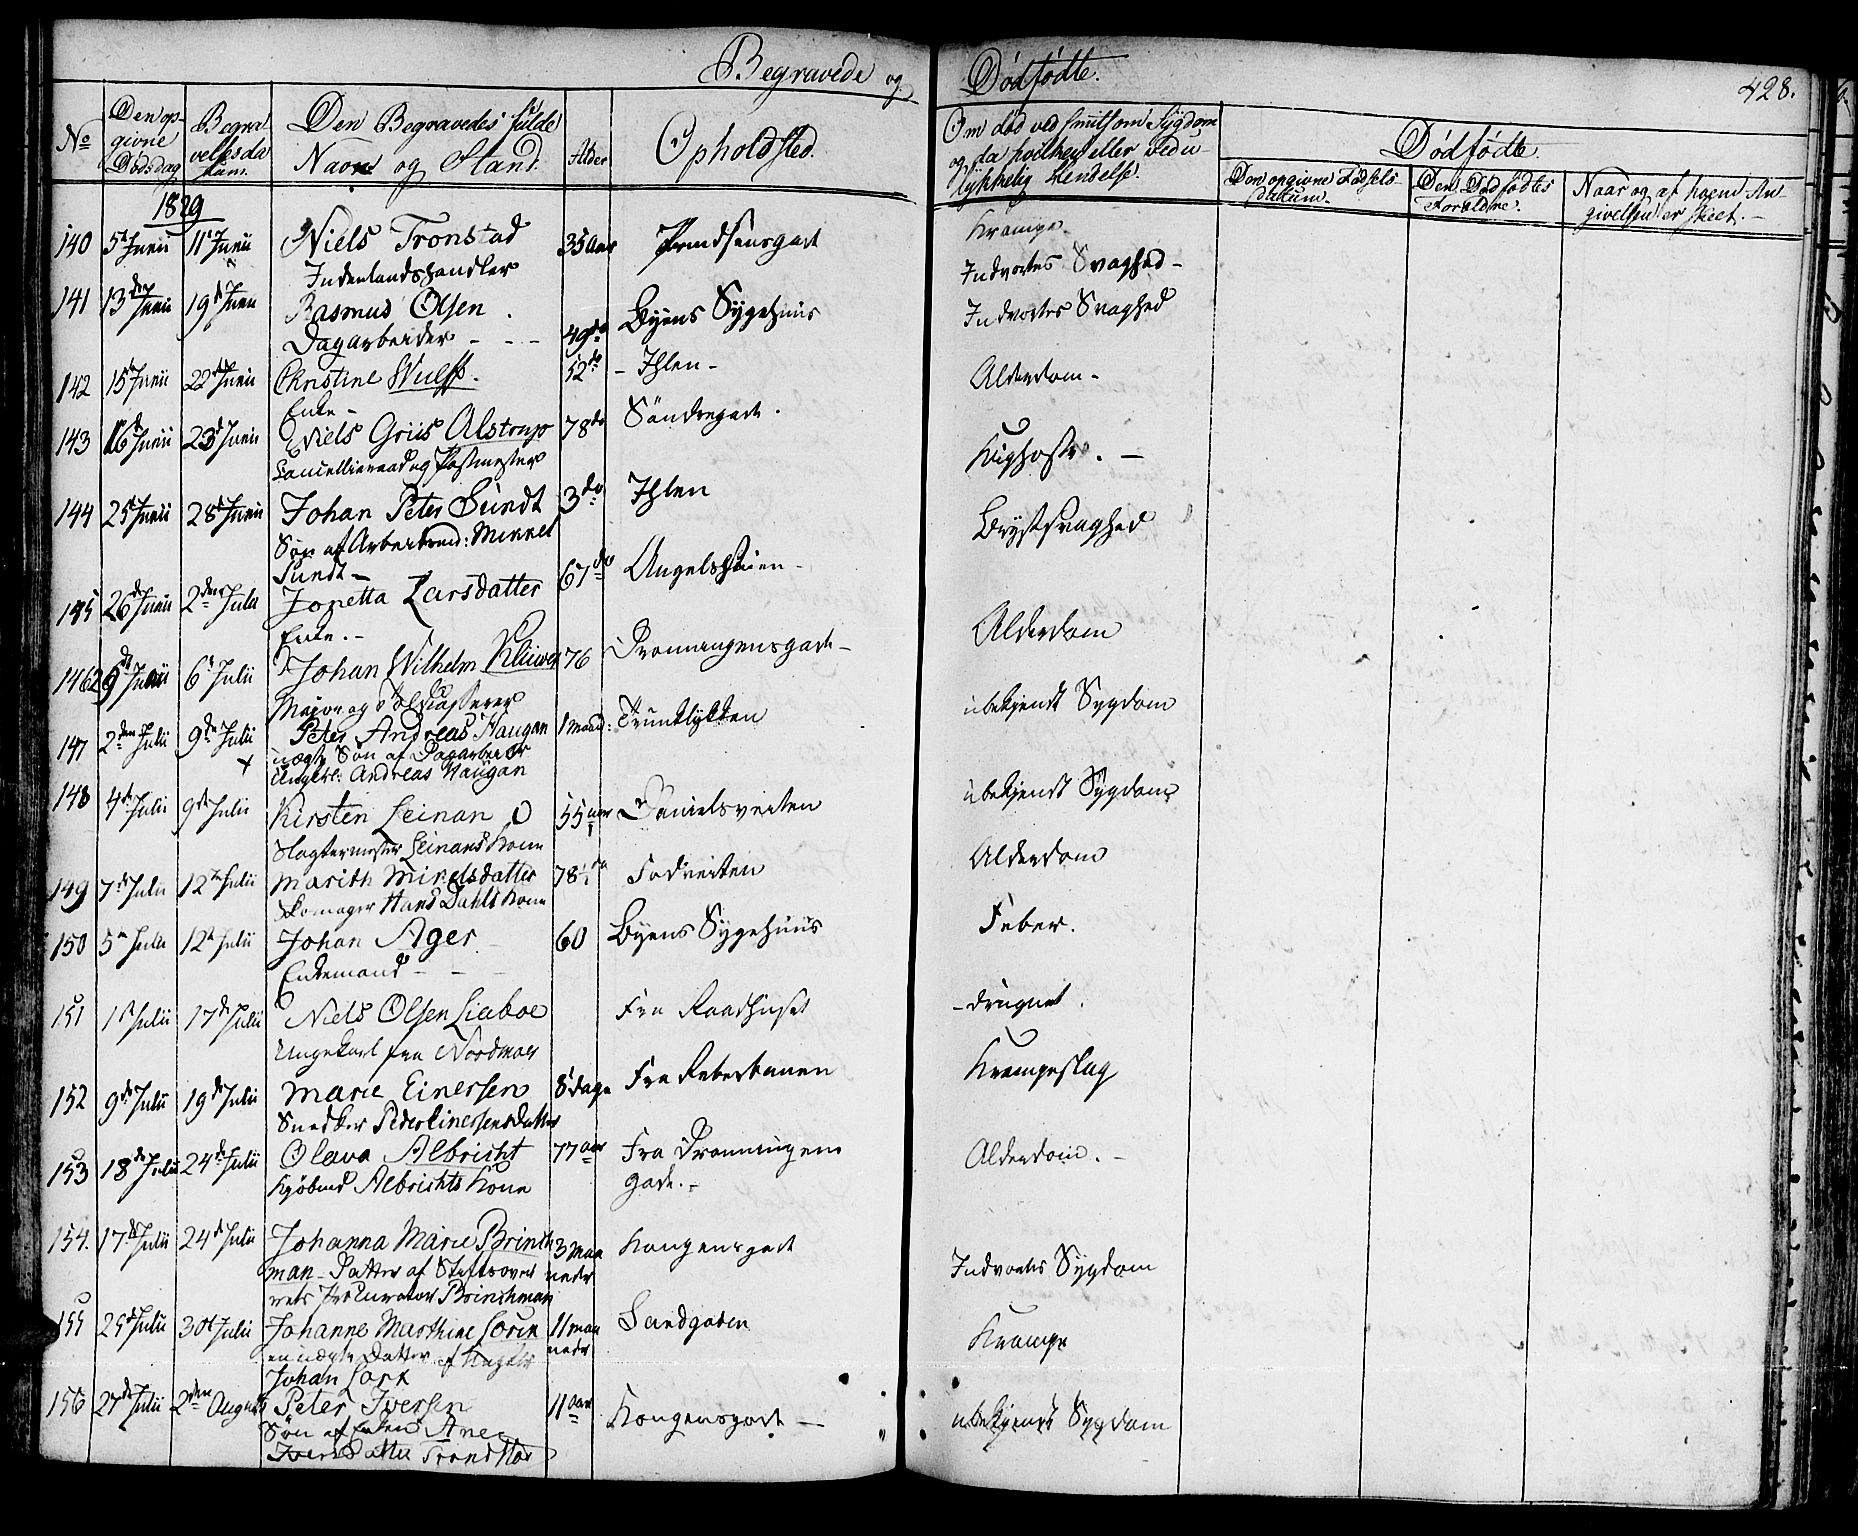 Begravede og Dødfødte.
428.
No
Den opgivne Dødsdag
Begravelsesdatum.
Den Begravedes fulde Navn og Stand.
Alder
Opholdsted.
Om død ved smitsom Sygdom og da hvilken eller ved ulykkelig Hendelse.
Dødfødte.
Den opgivne Fødselsdatum.
Den Dødfødtes Forældre.
Naar og af hvem Angivelsen er skeet.
1829
140 5te Junii 11te Junii Niels Tronstad 35 Aar Prindsensgade Krampe
Indenlandshandler Indvortes Svaghed
141 13de Junii 19de Junii Rasmus Olsen 49 do Byens Sygehuus Indvortes Svaghed
Dagarbeider
142 15de Junii 22de Junii Christine Wulff. 52 do Ihlen Alderdom
Enke
143 16de Junii 23de Junii Niels Griis Alstrup 78 do Söndregade. Kighoste.
Cancellieraad og Postmester
144 25de Junii 28de Junii Johan Peter Sundt 3 do Ihlen Brystsvaghed
Søn af Arbeidsmd: Mikkel
Sundt
145 26de Junii 2den Julii Jonetta Larsdatter 67 do Alderdom
Enke.
146 29de Junii 6te Julii Johan Wilhelm Klüwer 76 Dronningensgade ubekjendt Sygdom
Major og Toldkasserer
147 2den Julii 9de Julii Peter Andreas Haugan 1 Maad: ubekjendt Sygdom
uægte Søn af Dagarbeider
Ungkl: Andreas Haugan
148 4de Julii 9de Julii Kirsten Leinan 55 aar Danielsveiten Alderdom
Slagtermester Leinans Kone
149 7de Julii 12te Julii Marith Mikelsdatter 78½ Feber.
Skomager Hans Dahls Kone
150 5te Julii 12te Julii Johan Ager 60 Byens Sygehuus
Enkemand
151 1ste Julii 17de Julii Niels Olsen Liaboe Fra Raadhuset druknet.
Ungekarl fra Nordmør
152 9de Julii 19de Julii Marie Einersen 8 dage Fra Reberbanen Krampeslag
Snedker Peder Einersens Datter
153 18de Julii 24de Julii Olava Albricht 77 aar Fra Dronningens Alderdom.
Kjøbmd Albrichts Kone gade.
154. 17de Julii 24de Julii Johanna Marie Brinch 3 Maa Kongensgade Indvortes Sygdom
man Datter af Stiftsover neder
rets Prokurator Brinchman
155 25de Julii 30te Julii Johanne Marthine Lorck 11 maa Sandgaden Krampe
en uægte Datter af Ungkl: neder
Johan Lorck
156 27de Julii 2den August Peter Iversen 11 aar Kongensgade ubekjendt Sygdom
Søn af Enken Ane
Iversdatter Trondstad